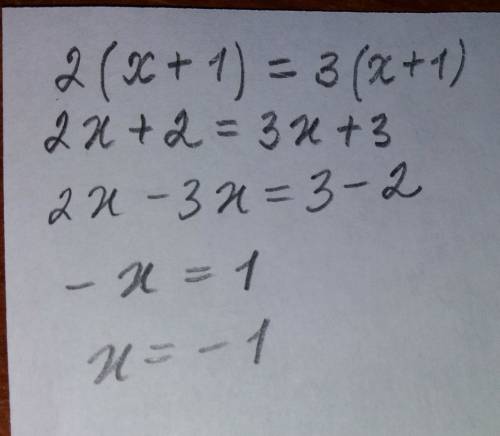 2(x+1) = 3(x+1)
2x+2 = 3x+3
2x - 3x = 3 - 2
- x = 1
x = - 1